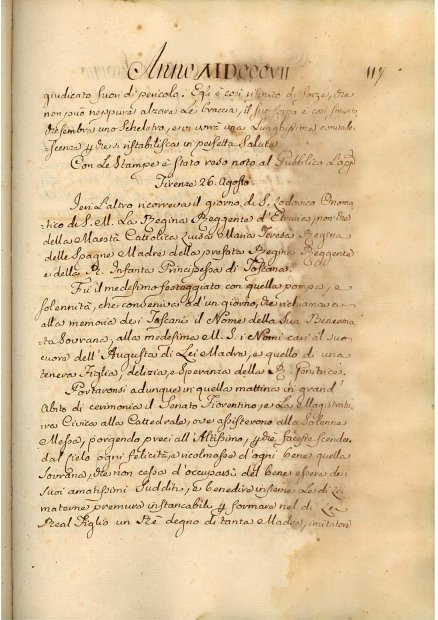 Anno MDCCCVII 117
giudicato fuori di pericolo. Egli è così rifinito di forze, che
non può neppure alzare le braccia, il suo corpo è così smunto
che sembra uno Scheletro, e vi vorrà una Lunghissima convale-
scenza ꝑ che si ristabilisca in perfetta Salute.
Con Le Stampe è stato reso noto al Pubblico
Firenze 26. Agosto
Jeri L'altro ricorreva il giorno di S. Lodovico Onoma-
tico di S. M. La Regina Reggente d'Etruria, non che
della Maestà Cattolica Luisa Maria Teresa Regina
delle Spagne Madre della prefata Regina Reggente
e della R. Infanta Principessa di Toscana.
Fù il medesimo festeggiato con quella pompa, e
solennità, che conveniva ad un giorno, che richiamava
alla memoria dei Toscani il Nome della Sua Beneama-
ta Sovrana, alla medesima M. S. i Nomi cari al suo
cuore dell'Augusta di Lei Madre, e quello di una
tenera Figlia, delizia, e Speranza della R. Genitrice.
Portaronsi adunque in quella mattina in grand'
Abito di cerimonia il Senato Fiorentino, e La Magistratu-
ra Civica alla Cattedrale, ove assisterono alla Solenne
Messa, porgendo preci all'Altissimo, ꝑ che facesse scendere
dal Cielo ogni felicità, e ricolmasse d'ogni bene quella
Sovrana, che non cessa d'occuparsi del bene essere dei
suoi amatissimi Sudditi, e benedire insieme Le di Lei
materne premure instancabili ꝑ formare nel di Lei
Real Figlio un Rè degno di tanta Madre, imitatore